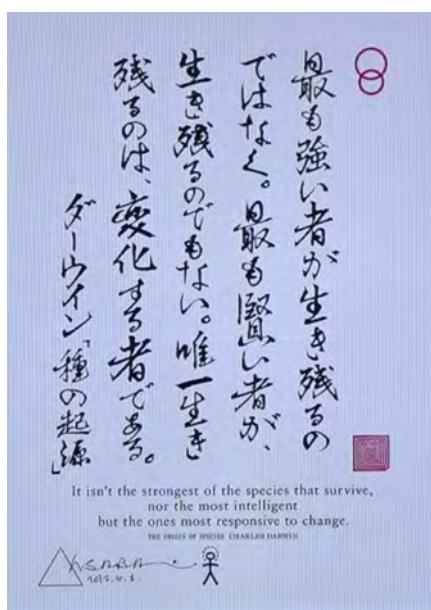 最も強い者が生き残るの
ではなく。最も賢い者が、
生き残るのでもない。唯一生き
残るのは、変化する者である。
ダーウイン「種の起源」
It isn't the strongest of the species that survive,
nor the most intelligent
but the ones most responsive to change.
THE ORIGIN OF SPECIES CHARLES DARWIN